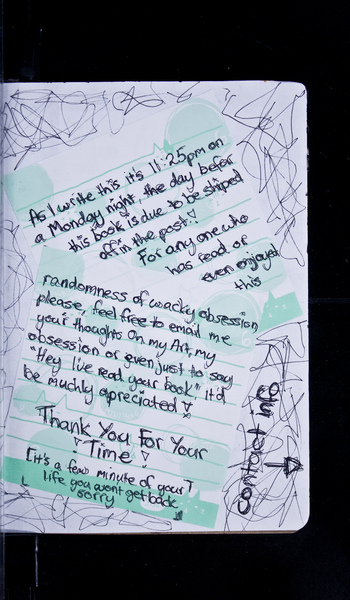 As I write this it's 11:25pm on
a Monday night, the day befor
this book is due to be shiped
off in the post!
For any one who
has read or
even enjoyed
this
randomness of wacky obsession
please, feel free to email me
your thoughts on my Art, my
obsession or even just to say
"Hey I've read your book" it'd
be muchly apreciated
Thank You For Your
Time
[it's a few minute of your
life you wont get back
sorry]
contact info